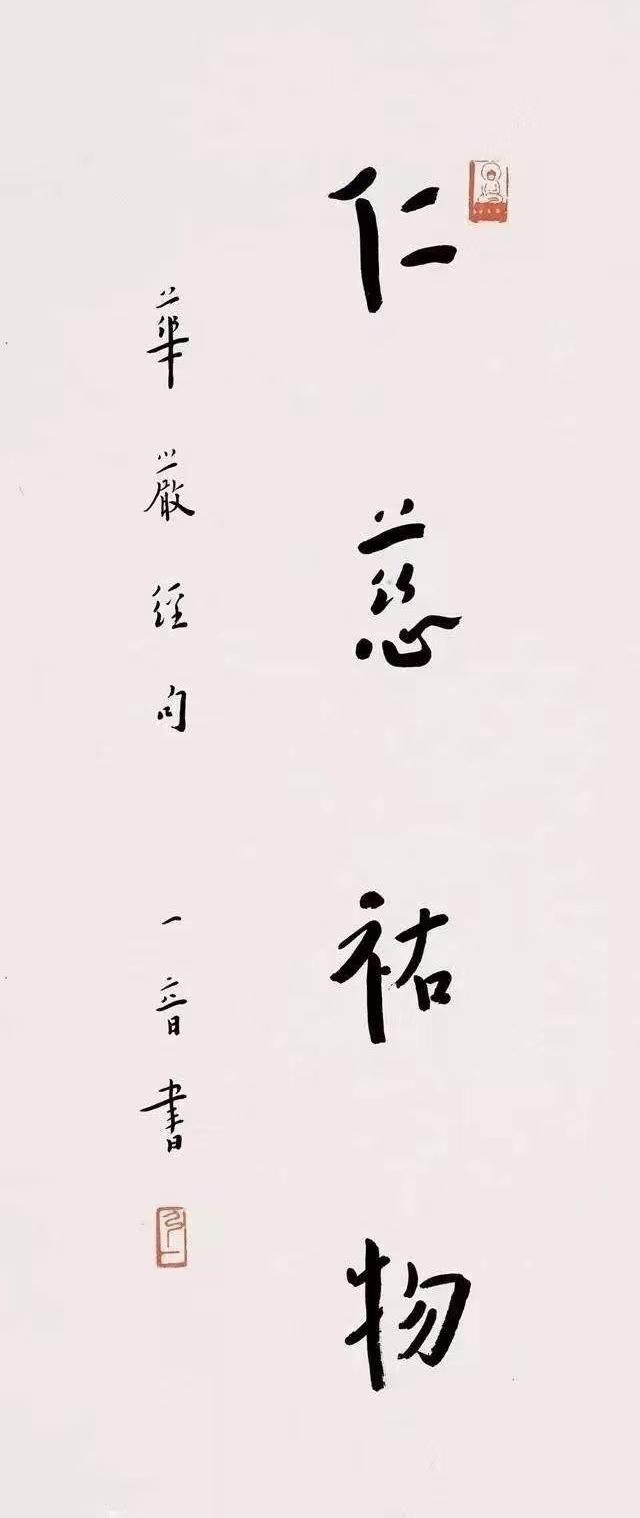 仁慈祐物
華嚴經句 一音書